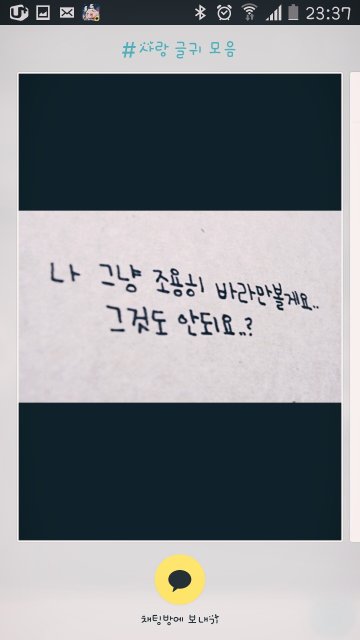 23:37
#사랑 글귀 모음
나 그냥 조용히 바라만볼게요..
그것도 안되요..?
채팅방에 보내기